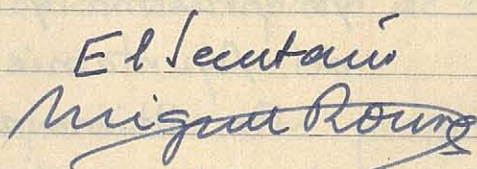 El Secretario
Miguel Rouro